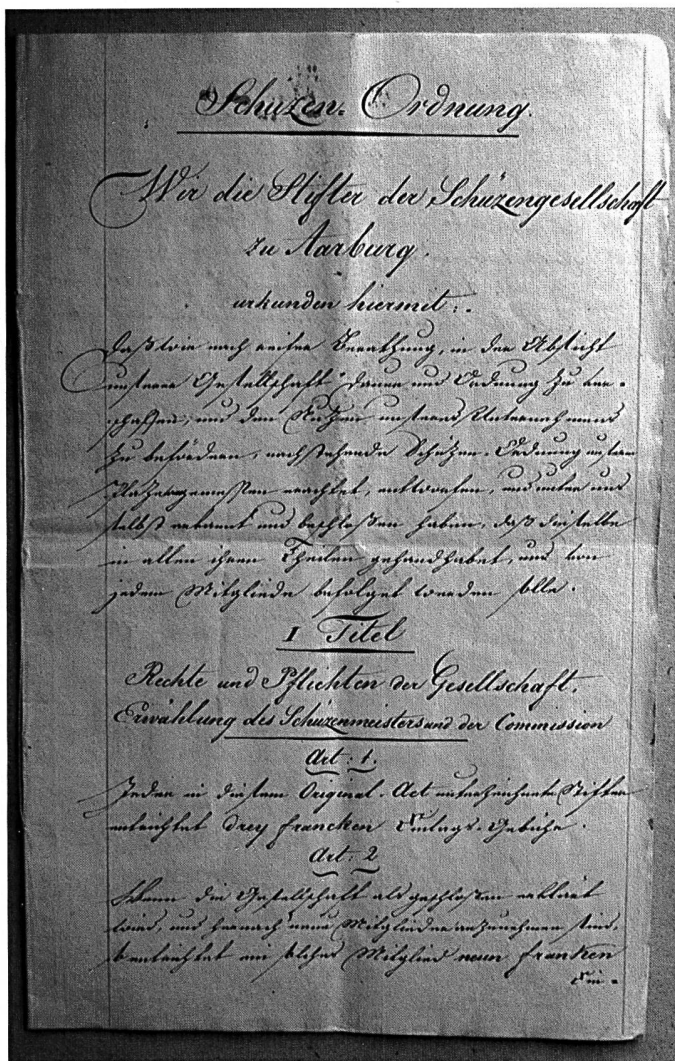 Schüzen-Ordnung.
Wir die Stifter der Schüzengesellschaft
zu Aarburg,
urkunden hiermit:
Daß wir nach reifer Berathung, in der Absicht
unserer Gesellschaft Dauer und Ordnung zu ver-
schaffen, und den Nutzen unseres Unternehmens
zu befördern, nachstehende Schüzen-Ordnung
erachtet, entworfen, und unter uns
selbst erkannt und beschloßen haben, daß dieselbe
in allen ihren Theilen gehandhabet, und von
jedem Mitgliede befolget werden solle.
I Titel
Rechte und Pflichten der Gesellschaft.
Erwählung des Schüzenmeisters und der Commission
Art: 1.
Jeder in diesem Original-Act unterzeichnete Stifter
entrichtet drey Francken Einlags-Gebühr.
Art: 2
Wenn die Gesellschaft als geschloßen erklärt
wird, und hernach neue Mitglieder anzunehmen sind,
so entrichtet ein solches Mitglied neun Franken
Ein-